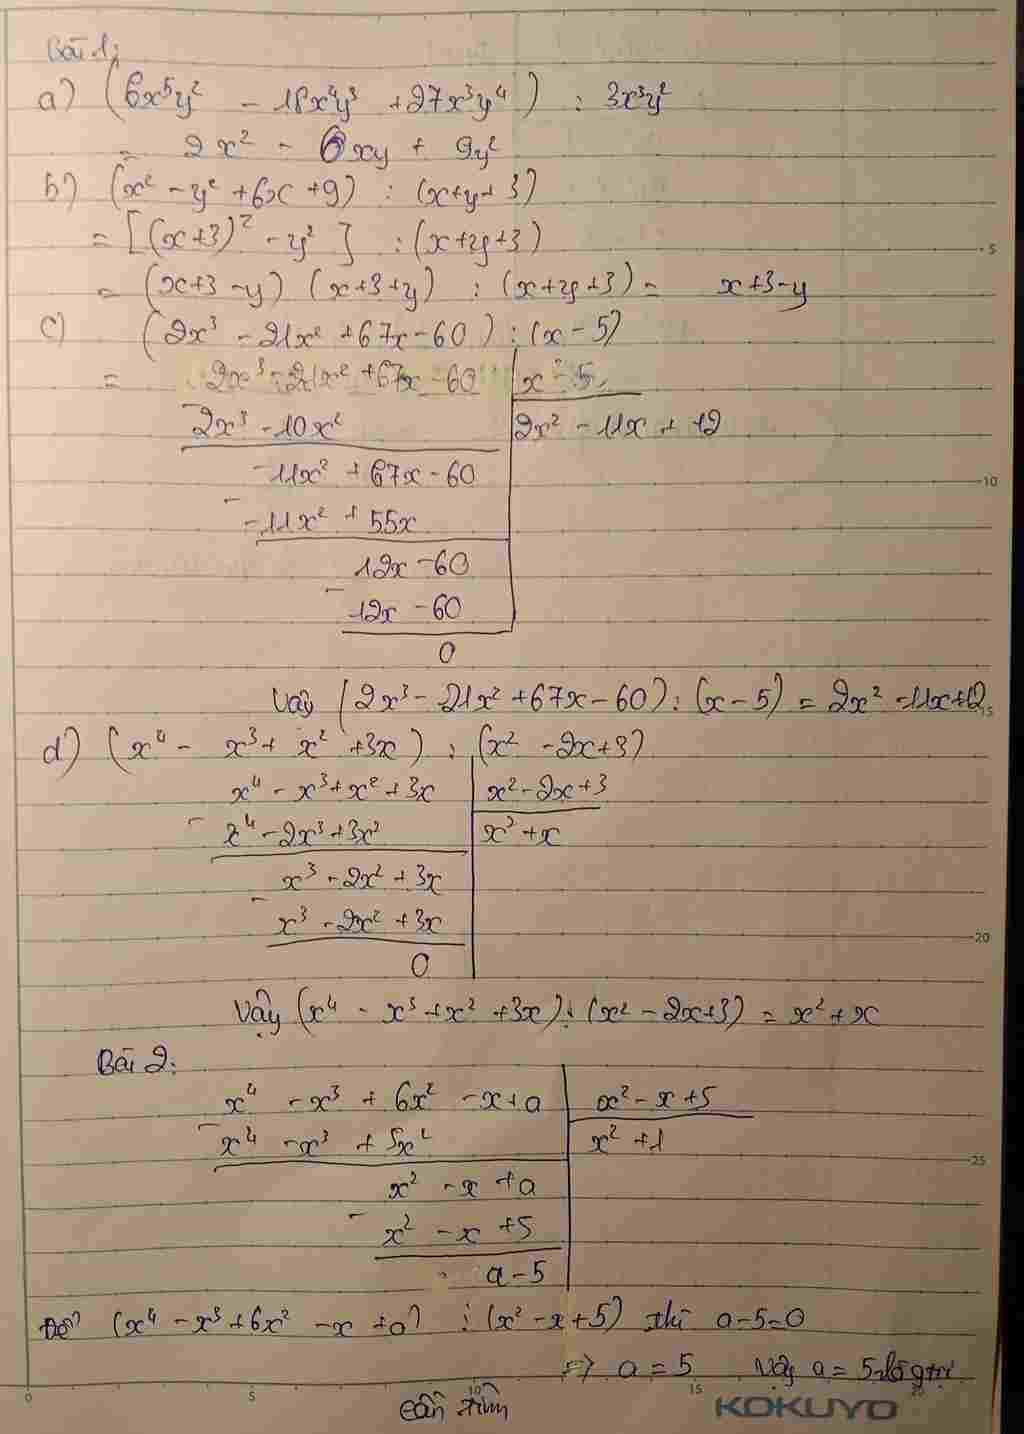 Bài 1:
a) (6x⁵y² - 18x⁴y³ + 27x³y⁴) : 3x³y²
= 2x² - 6xy + 9y²
b) (x² - y² + 6x + 9) : (x+y+3)
= [(x+3)² - y²] : (x+y+3)
= (x+3-y) (x+3+y) : (x+y+3) = x+3-y
c) (2x³ - 21x² + 67x - 60) : (x - 5)
= 2x³ - 21x² + 67x - 60 | x - 5
- 2x³ - 10x² | 2x² - 11x + 12
-11x² + 67x - 60
- -11x² + 55x
12x - 60
- 12x - 60
0
Vậy (2x³ - 21x² + 67x - 60) : (x - 5) = 2x² - 11x + 12
d) (x⁴ - x³ + x² + 3x) : (x² - 2x + 3)
x⁴ - x³ + x² + 3x | x² - 2x + 3
- x⁴ - 2x³ + 3x² | x² + x
x³ - 2x² + 3x
- x³ - 2x² + 3x
0
Vậy (x⁴ - x³ + x² + 3x) : (x² - 2x + 3) = x² + x
Bài 2:
x⁴ - x³ + 6x² - x + a | x² - x + 5
- x⁴ - x³ + 5x² | x² + 1
x² - x + a
- x² - x + 5
a - 5
Để (x⁴ - x³ + 6x² - x + a) ⋮ (x² - x + 5) thì a - 5 = 0
=> a = 5 Vậy a = 5 là gtrị
cần tìm
5
10
15
20
25
0 5 10 15 20
KOKUYO